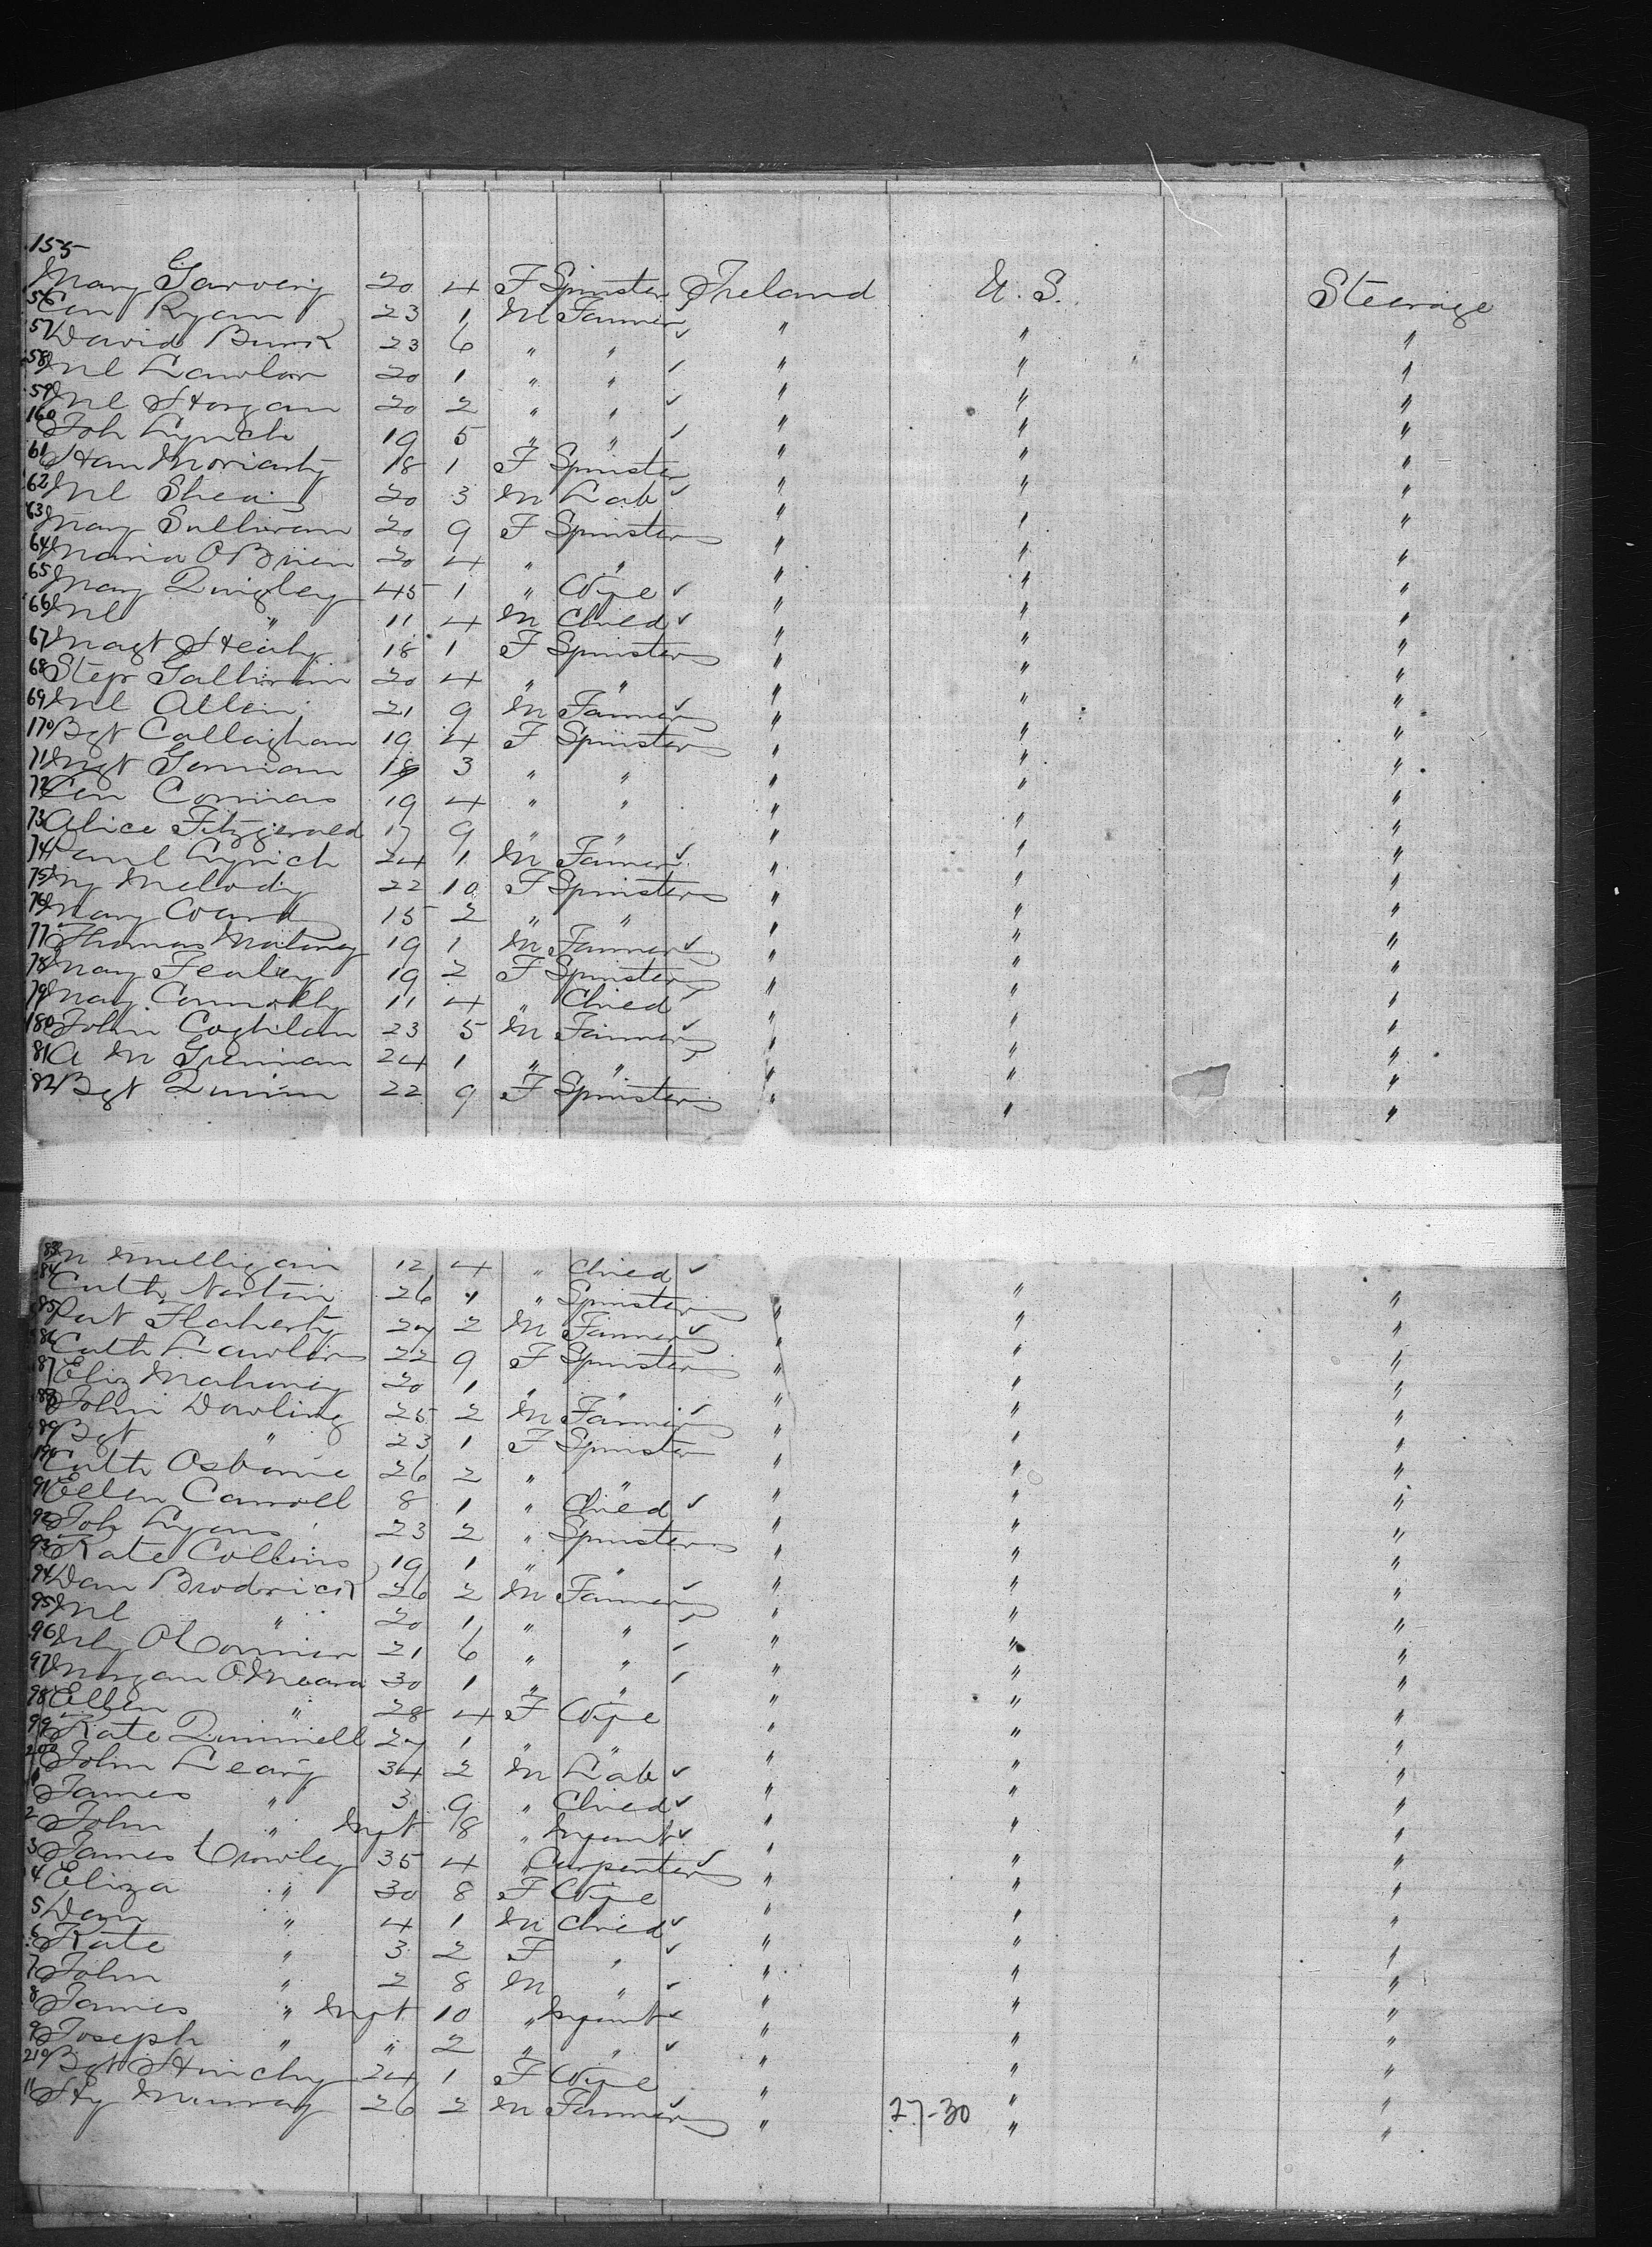 155
Mary Garvey 20 4 F Spinster Ireland U. S. Steerage
56 Ryan 23 1 M Farmer " " "
57 David Burk 23 6 " " " " "
58 Ml Lawlor 20 1 " " " " "
59 Ml Horgan 20 2 " " " " "
160 Joh Lynch 19 5 " " " " "
61 Han Moriarty 18 1 F Spinster " " "
62 Ml Shea 20 3 M Lab " " "
63 Mary Sullivan 20 9 F Spinster " " "
64 Maria OBrien 20 4 " " " " "
65 Mary Quigley 45 1 " Wife " " "
66 Ml " 11 4 M Child " " "
67 Magt Healy 18 1 F Spinster " " "
68 Step Sullivan 20 4 " " " " "
69 Ml Allen 21 9 M Farmer " " "
170 Bgt Callaghan 19 4 F Spinster " " "
71 Mgt Gorman 18 3 " " " " "
72 Connors 19 4 " " " " "
73 Alice Fitzgerald 17 9 " " " " "
74 Paul Lynch 24 1 M Farmer " " "
75 My Melody 22 10 F Spinster " " "
76 Mary Coard 15 2 " " " " "
77 Thomas Molony 19 1 M Farmer " " "
78 Mary Fealey 19 2 F Spinster " " "
79 Mary Connolly 11 4 " Child " " "
180 John Coghlan 23 5 M Farmer " " "
81 A M Grennan 24 1 " " " " "
82 Bgt Quinn 22 9 F Spinster " " "
83 M Mulligan 12 4 " Child
84 Cath Norton 26 1 " Spinster " " "
85 Pat Flaherty 27 2 M Farmer " " "
86 Cath Lawlor 22 9 F Spinster " " "
87 Eliz Mahoney 20 1 " " " " "
88 John Dowling 25 2 M Farmer " " "
89 Bgt " 23 1 F Spinster " " "
190 Cath Osborne 26 2 " " " " "
91 Ellen Carroll 8 1 " Child " " "
92 Joh Lyons 23 2 " Spinster " " "
93 Kate Collins 19 1 " " " " "
94 Dan Broderick 26 2 M Farmer " " "
95 Ml " 20 1 " " " " "
96 OConnor 21 6 " " " " "
97 Morgan OMeara 30 1 " " " " "
98 Ellen " 28 4 F Wife " " "
99 Kate Quinnell 27 1 " " " " "
200 John Leary 34 2 M Lab " " "
1 James " 3 9 " Child " " "
2 John " Inft 8 " Infant " " "
3 James Crowley 35 4 " Carpenter " " "
4 Eliza " 30 8 F Wife " " "
5 Dan " 4 1 M Child " " "
6 Kate " 3 2 F " " " "
7 John " 2 8 M " " " "
8 James " Inft 10 " Infant " " "
9 Joseph " " 2 " " " " "
210 Bgt Hinchy 24 1 F Wife " " "
11 Hy Murray 26 2 M Farmer " 27-30 " "